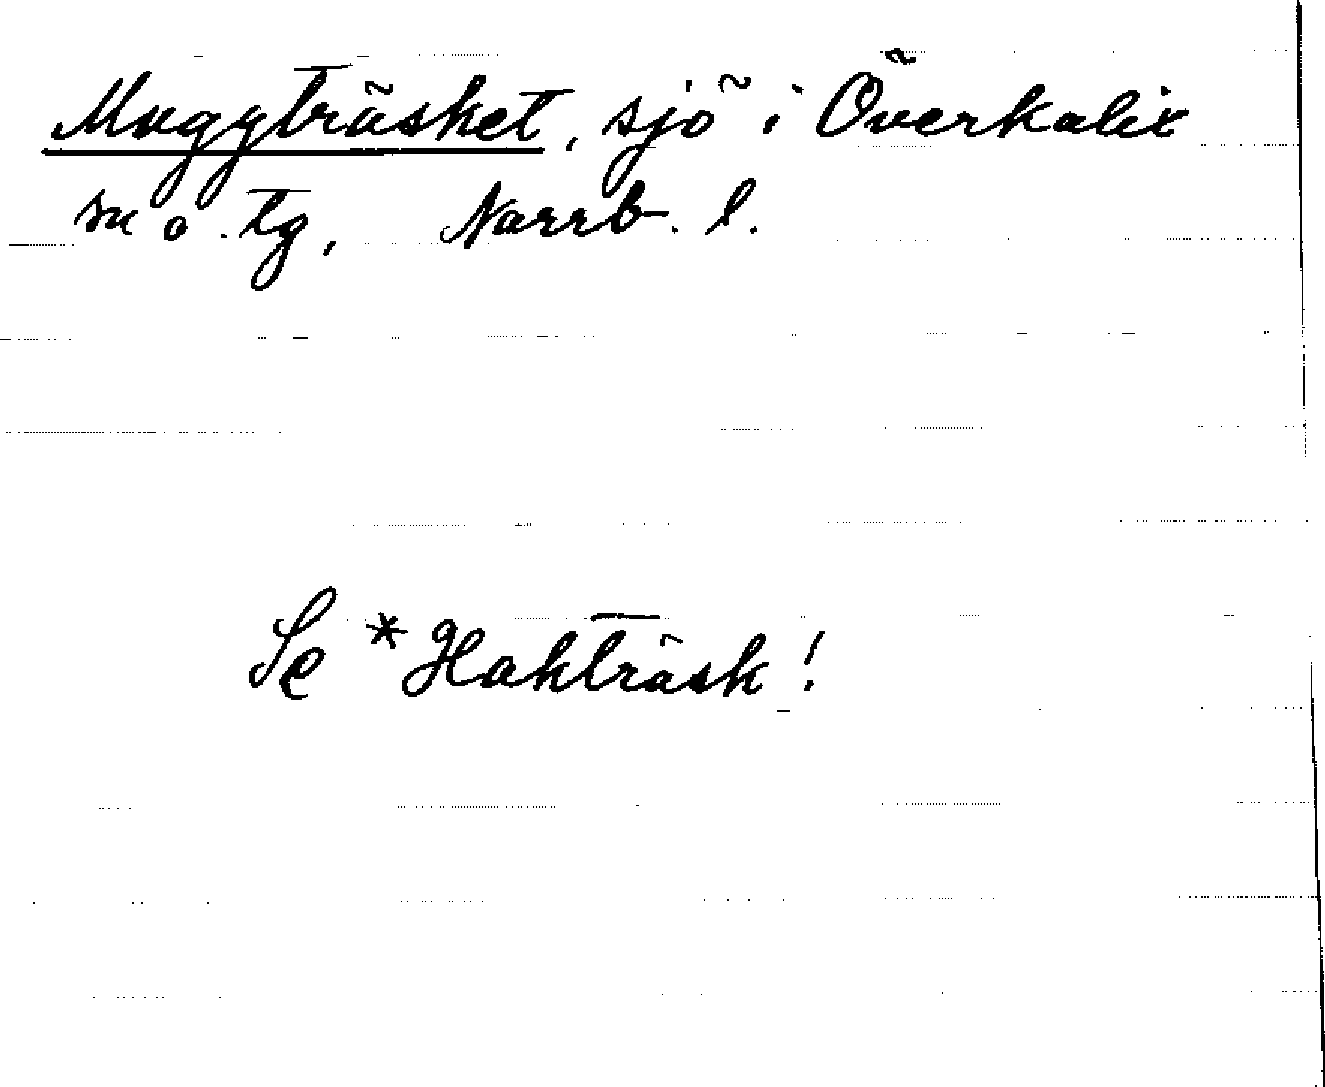 Muggträsket, sjö i Överkalix
sn o. tg, Norrb. l.
Se *Hakträsk!